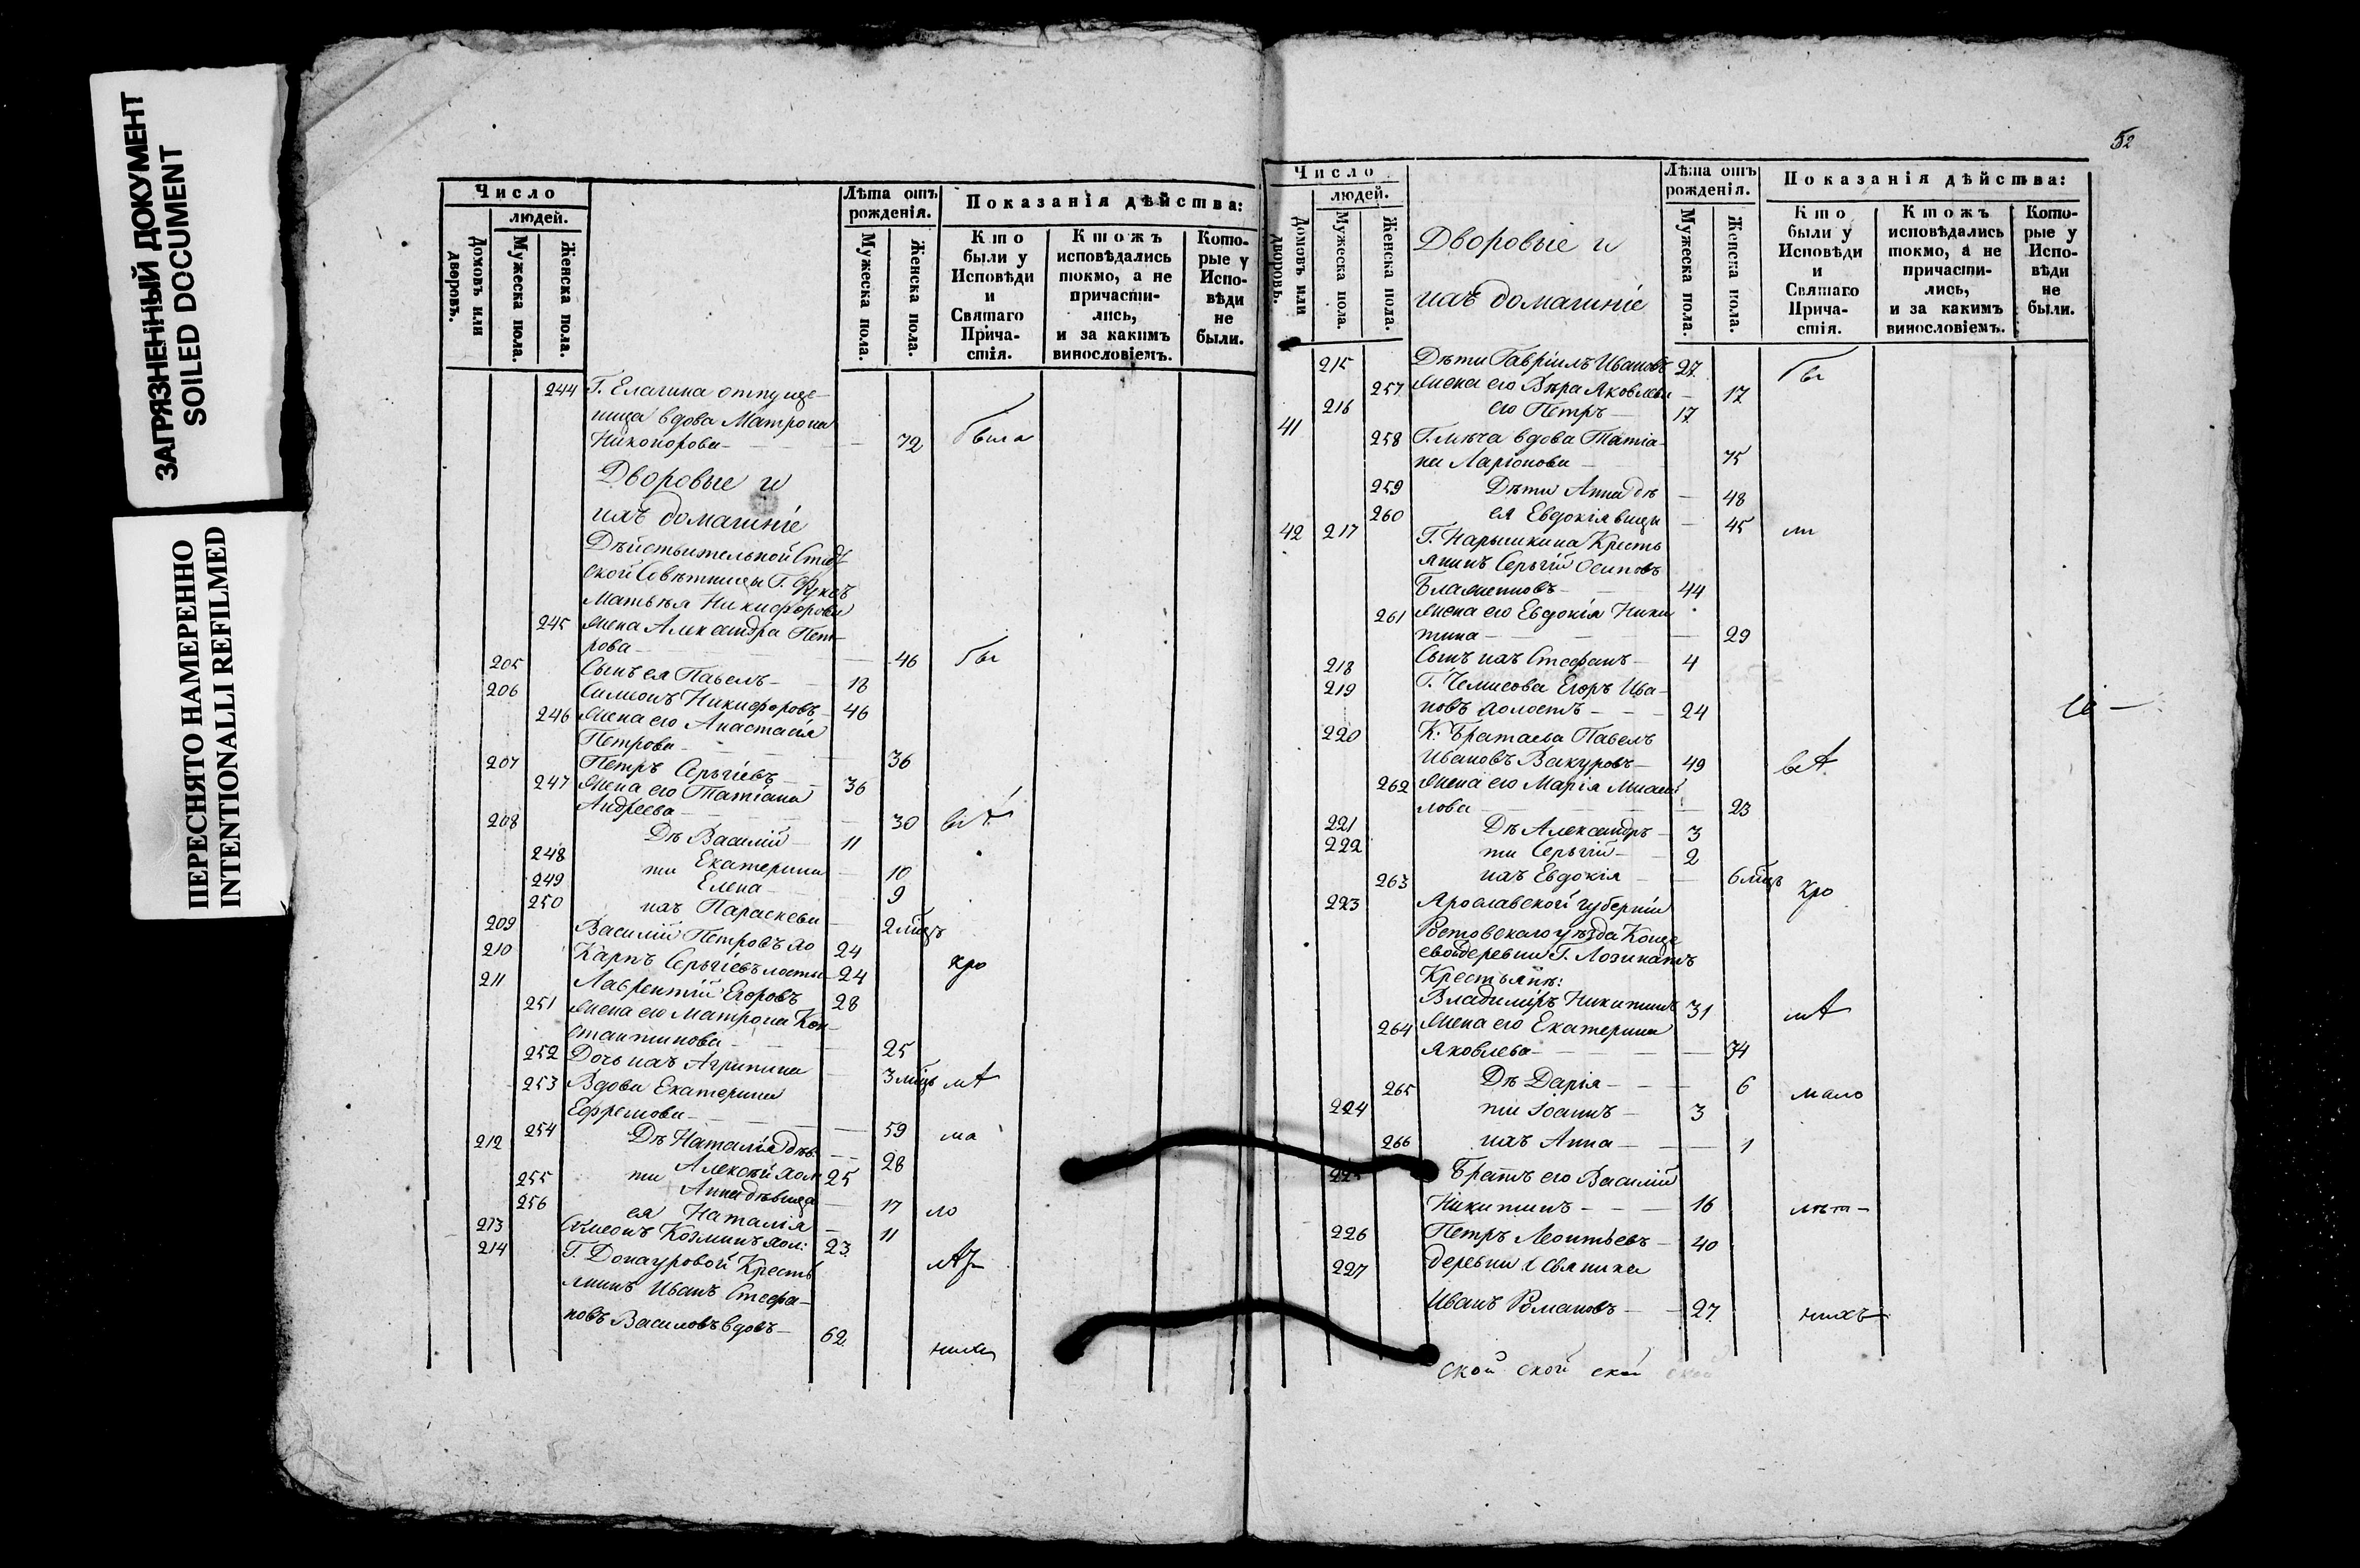 ЗАГРЯЗНЕННЫЙ ДОКУМЕНТ
SOILED DOCUMENT
ПЕРЕСНЯТО НАМЕРЕННО
INTENTIONALLI REFILMED
Число
людей.
Домовъ или дворовъ.
Мужеска пола.
Женска пола.
Лѣта отъ рожденія.
Мужеска пола.
Женска пола.
Показанія дѣйства:
Кто были у Исповѣди и Святаго Прича-стія.
Ктожъ исповѣдались токмо, а не причасти-лись, и за какимъ винословіемъ.
Кото-рые у Испо-вѣди не были.
244 Г. Елагина отпуще-
ница вдова Матрона
Никонорова - 72 была
Дворовые и
ихъ домашніе
Дѣйствительной Стат
ской Совѣтницы Г.
Матвѣя Никифорова
245 жена Александра Пет-
рова - 46 бы
205 Сынъ ея Павелъ - 18
206 Симеонъ Никифоровъ - 46
246 жена его Анастасія
Петрова - 36
207 Петръ Сергіевъ - 36
247 жена его Татіана
Андреева - 30
208 Дѣ Василій - 11
248 ти Екатерина - 10
249 Елена - 9
250 ихъ Параскева - 2 мцъ
209 Василій Петровъ хо 24
210 Карпъ Сергіевъ лосты - 24 кро
211 Лаврентій Егоровъ 28
251 жена его Матрона Кон-
стантинова - 25
252 Дочь ихъ Агрипина 3 мцъ
253 Вдова Екатерина
Ефремова - 59 ма
254 Дѣ Наталія дѣв. - 28
212 ти Алексѣй хол 25
255 Анна дѣвица 17 ло
256 ея Наталія - 11
213 Симеонъ Козминъ хол: 23
214 Г. Донауровой Кресть
янинъ Иванъ Стефа-
новъ Василовъ вдовъ - 62
52
Число
людей.
Домовъ или дворовъ.
Мужеска пола.
Женска пола.
Дворовые и
ихъ домашніе
Лѣта отъ рожденія.
Мужеска пола.
Женска пола.
Показанія дѣйства:
Кто были у Исповѣди и Святаго Прича-стія.
Ктожъ исповѣдались токмо, а не причасти-лись, и за какимъ винословіемъ.
Кото-рые у Испо-вѣди не были.
215 Дѣти Гавріилъ Ивановъ 27 бы
257 жена его Вѣра Яковлева - 17
216 его Петръ - 17
41 258 вдова Татіа-
на Ларіонова - 75
259 Дѣти Анна дѣ - 48
260 ея Евдокія вицы - 45 ли
42 217 Г. Нарышкина Кресть
янинъ Сергій Осиповъ
44
261 жена его Евдокія Ники
тина - 29
218 Сынъ ихъ Стефанъ - 4
219 Г. Чемисова Егоръ Ива-
новъ холостъ - 24
220 К. Братаева Павелъ
Ивановъ Вакуровъ - 49
262 жена его Марія Михай
лова - 23
221 Дѣ Александръ - 3
222 ти Сергій - 2
263 ихъ Евдокія - 6 мцъ кро
223 Ярославской губерніи
Ростовскаго уѣзда
деревни Г.
Крестьянъ:
Владиміръ Никитинъ 31
264 жена его Екатерина
Яковлева - 34
265 Дѣ Дарія - 6 мало
224 ти Іоаннъ - 3
266 ихъ Анна - 1
225 Братъ его Василій
Никитинъ - 16 лѣт -
226 Петръ Леонтьевъ - 40
227 деревни
Иванъ Романовъ - 27 нихъ
ской ской ской ской